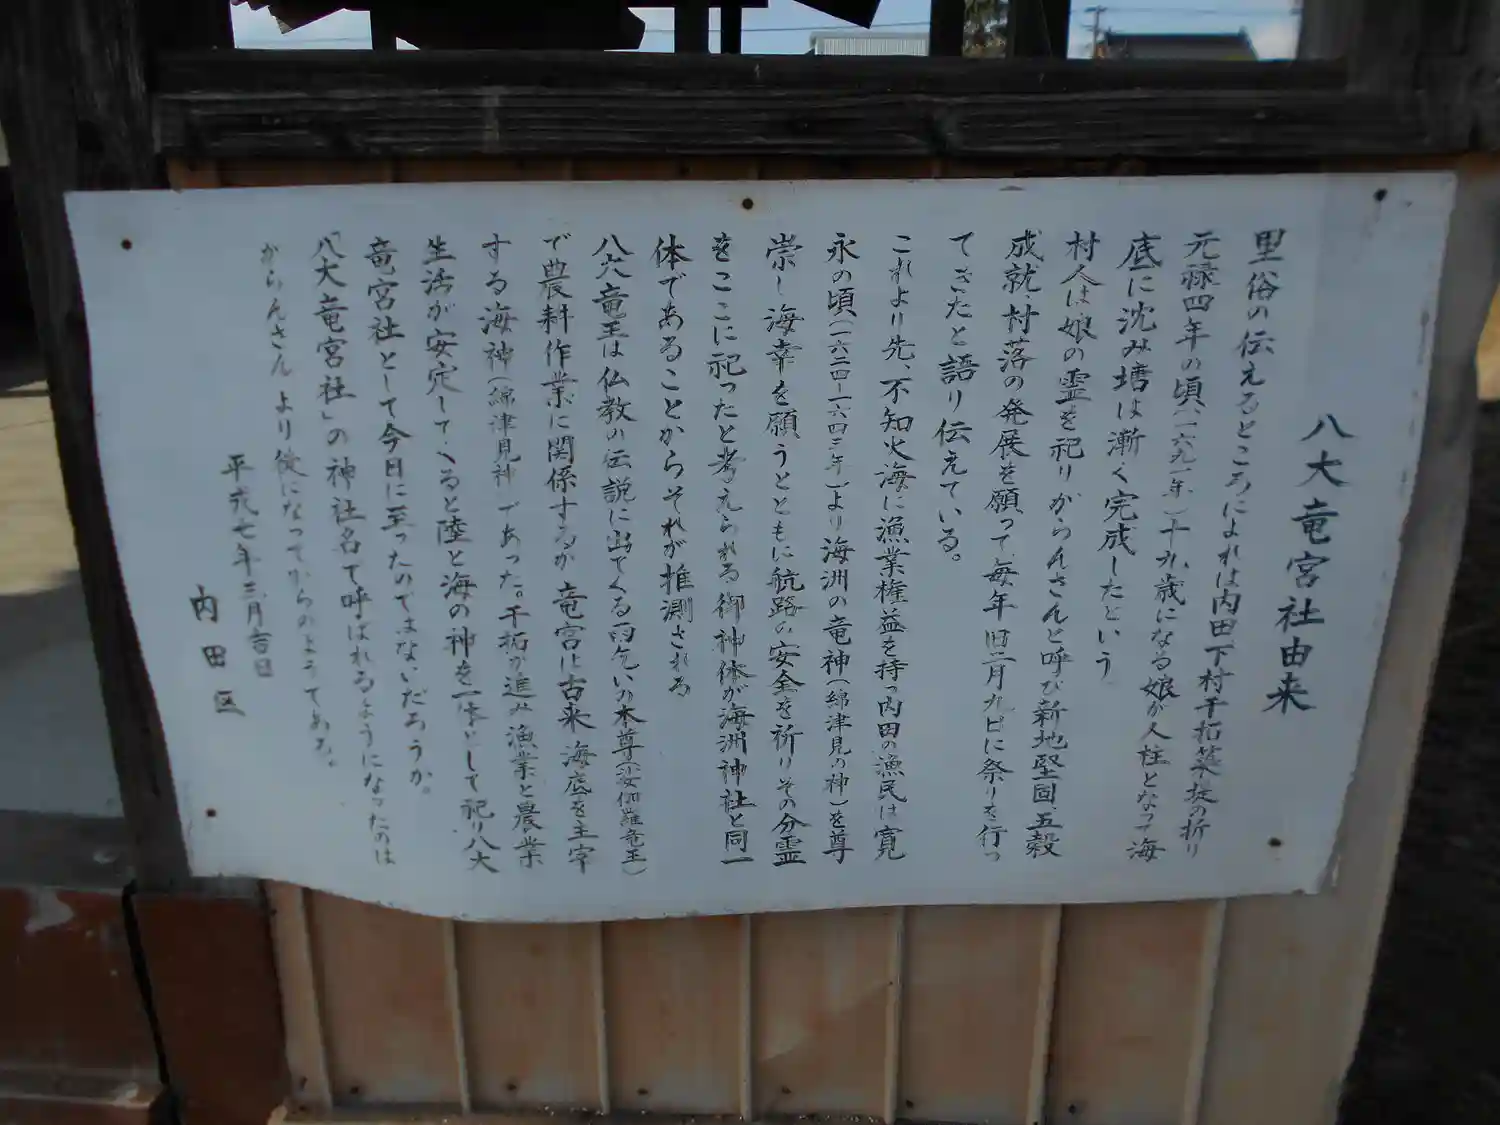 八大竜宮社由来
里俗の伝えるところによれば内田下村干拓築堤の折り
元禄四年の頃(一六九一年)十九歳になる娘が人柱となって海
底に沈み塘は漸く完成したという
村人は娘の霊を祀りがらんさんと呼び新地堅固、五穀
成就、村落の発展を願って、毎年旧二月九日に祭りを行っ
てきたと語り伝えている。
これより先、不知火海に漁業権益を持つ内田の漁民は寛
永の頃(一六二四-一六四三年)より海洲の竜神(綿津見の神)を尊
崇し海幸を願うとともに航路の安全を祈りその分霊
をここに祀ったと考えられる御神体が海洲神社と同一
体であることからそれが推測される
八大竜王は仏教の伝説に出てくる雨乞いの本尊(沙伽羅竜王)
で農耕作業に関係するが 竜宮は古来海底を主宰
する海神(綿津見神)であった。干拓が進み漁業と農業
生活が安定してくると陸と海の神を一体として祀り八大
竜宮社として今日に至ったのではないだろうか。
「八大竜宮社」の神社名で呼ばれるようになったのは
がらんさん より後になってからのようである。
平成七年三月吉日
内田区